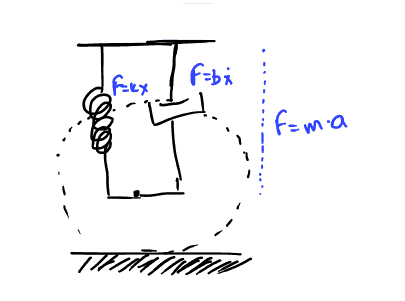 F=kx
F=bẋ
F=m·a